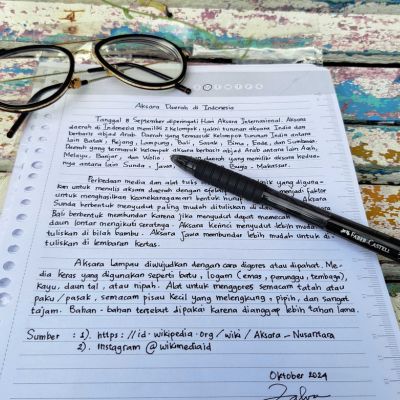 Aksara Daerah di Indonesia
Tanggal 8 September diperingati Hari Aksara Internasional. Aksara
daerah di Indonesia memiliki 2 kelompok, yakni turunan aksara India dan
berbasis abjad Arab. Daerah yang termasuk kelompok turunan India antara
lain Batak, Rejang, Lampung, Bali, Sasak, Bima, Ende, dan Sumbawa.
Daerah yang termasuk kelompok aksara berbasis abjad Arab antara lain Aceh,
Melayu, Banjar, dan Wolio. daerah yang memiliki aksara kedua-
nya antara lain Sunda, Jawa, Bugis - Makassar.
Perbedaan media dan alat tulis yang diguna-
kan untuk menulis aksara daerah dengan menjadi faktor
untuk menghasilkan keanekaragaman bentuk huruf
Sunda berbentuk menyudut paling mudah dituliskan di
Bali berbentuk membundar karena jika menyudut dapat memecah
daun lontar mengikuti seratnya. Aksara Kerinci menyudut lebih mudah
dituliskan di bilah bambu. Aksara Jawa membundar lebih mudah untuk di-
tuliskan di lembaran kertas.
Aksara lampau diwujudkan dengan cara digores atau dipahat. Me-
dia keras yang digunakan seperti batu, logam (emas, perunggu, tembaga),
kayu, daun tal, atau nipah. Alat untuk menggores semacam tatah atau
paku / pasak, semacam pisau kecil yang melengkung, pipih, dan sangat
tajam. Bahan - bahan tersebut dipakai karena dianggap lebih tahan lama.
Sumber : 1). https://id.wikipedia.org/wiki/Aksara_Nusantara
2). Instagram @wikimediaid
Oktober 2024
FABER-CASTELL